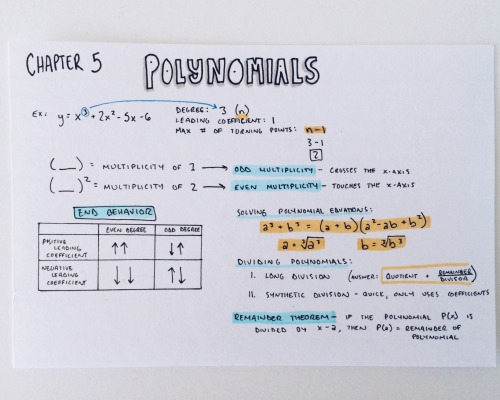 CHAPTER 5
POLYNOMIALS
EX: y = x³ + 2x² - 5x - 6
DEGREE: 3 (n)
LEADING COEFFICIENT: 1
MAX # OF TURNING POINTS: n-1
3-1
2
( __ ) = MULTIPLICITY OF 1 → ODD MULTIPLICITY - CROSSES THE X-AXIS
( __ )² = MULTIPLICITY OF 2 → EVEN MULTIPLICITY - TOUCHES THE X-AXIS
END BEHAVIOR
EVEN DEGREE ODD DEGREE
POSITIVE LEADING COEFFICIENT ↑↑ ↓↑
NEGATIVE LEADING COEFFICIENT ↓↓ ↑↓
SOLVING POLYNOMIAL EQUATIONS:
a³ + b³ = (a + b)(a² - ab + b²)
a = ∛a³ b = ∛b³
DIVIDING POLYNOMIALS:
I. LONG DIVISION (ANSWER: QUOTIENT + REMAINDER/DIVISOR)
II. SYNTHETIC DIVISION - QUICK, ONLY USES COEFFICIENTS
REMAINDER THEOREM - IF THE POLYNOMIAL P(x) IS
DIVIDED BY x-a, THEN P(a) = REMAINDER OF
POLYNOMIAL